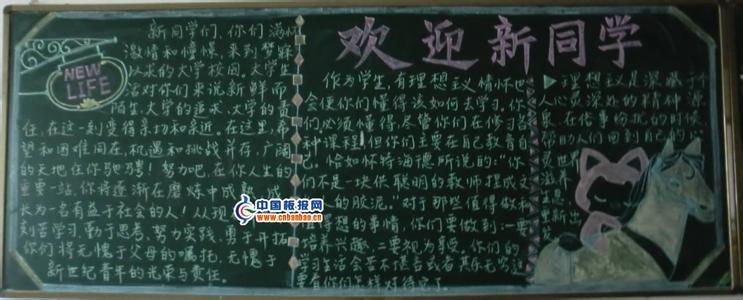 欢迎新同学
NEW
LIFE
新同学们,你们满怀
激情和憧憬,来到梦寐
以求的大学校园。大学生
活对你们来说新鲜而
陌生,大学的追求,大学的责
任,在这一刻变得亲切和亲近。在这里,希
望和困难同在,机遇和挑战并存,广阔
的天地任你驰骋!努力吧,在你人生的
重要一站,你将逐渐在磨炼中成
为一名有益于社会的人!从现
刻苦学习,勤于思考,努力实践,勇于开拓
你们将无愧于父母的嘱托,无愧于
新世纪青年的光荣与责任。
作为学生,有理想主义情怀也
会使你们懂得该如何去学习。你
们必须懂得,尽管你们在修习各
种课程,但你们主要在自己教育自
己。恰如怀特海德所说的:“你
们不是一块供聪明的教师捏成文
的胶泥。”对于那些值得做和
值得想的事情,你们要做到:一要
培养兴趣,二要视为享受。你们的
学习生活会苦不堪言或者其乐无穷,这
要看你们怎样对待它了。
理想主义是深藏于
人心灵深处的精神源
泉,在
帮助人们回到自己的心
灵世
滋养
思想
更新
中国板报网
www.cnbanbao.cn